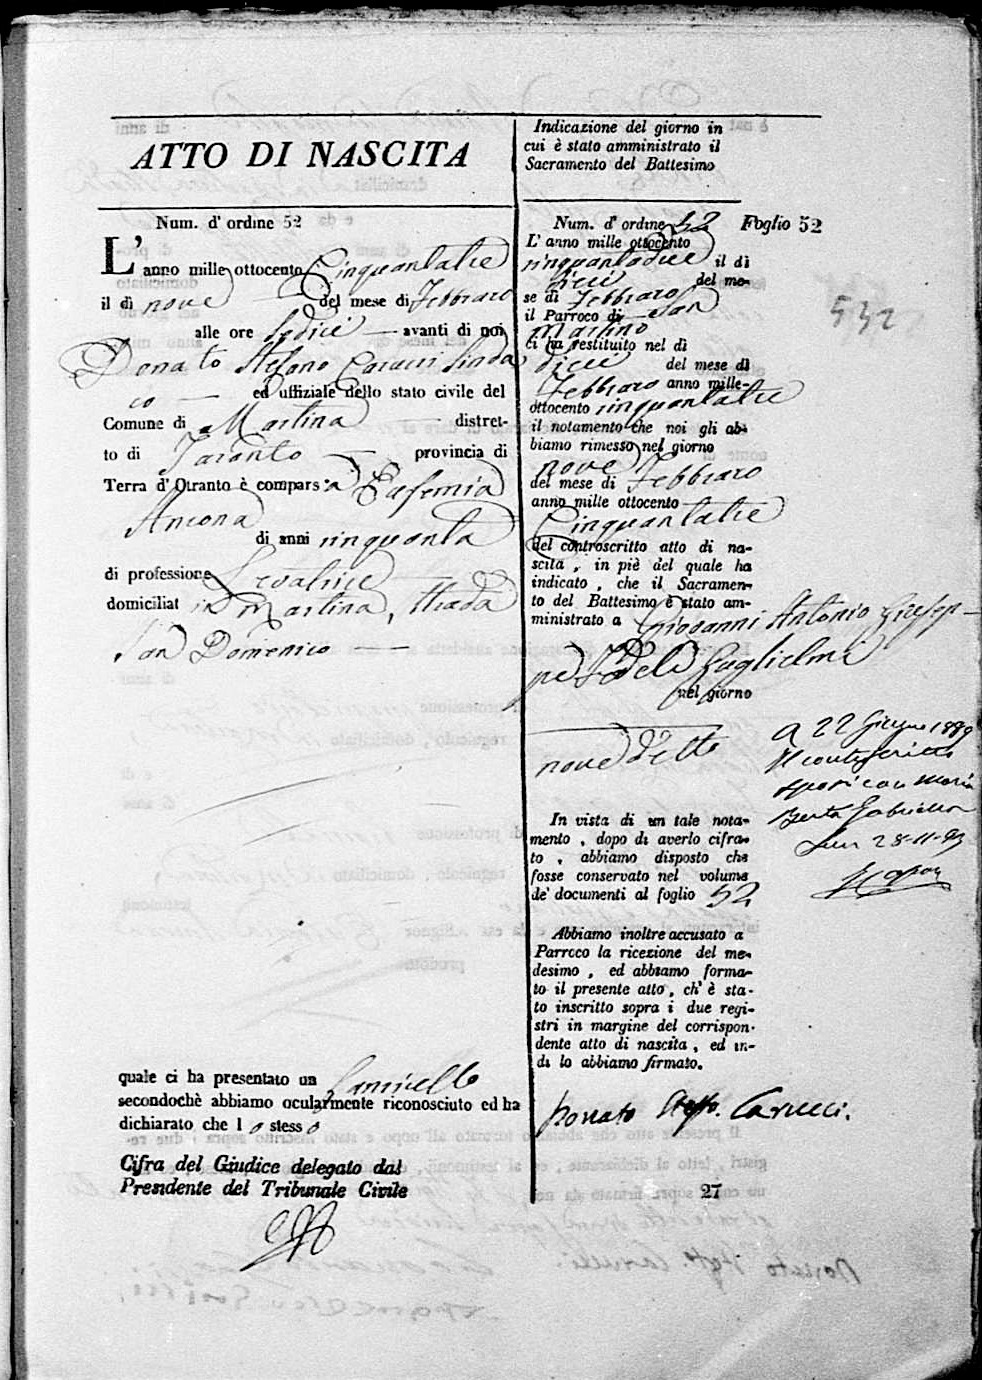 ATTO DI NASCITA
Num. d' ordine 52
L' anno mille ottocento Cinquantatre
il dì nove del mese di Febbraro
alle ore sedici avanti di noi
Donato Stefano Carucci Sinda
co ed uffiziale dello stato civile del
Comune di Martina distret-
to di Taranto provincia di
Terra d' Otranto è compars a Eufemia
Ancona
di anni cinquanta
di professione Levatrice
domiciliat in Martina, strada
San Domenico
quale ci ha presentato un
secondochè abbiamo ocularmente riconosciuto ed ha
dichiarato che l o stesso
Cifra del Giudice delegato dal
Presidente del Tribunale Civile
Indicazione del giorno in
cui è stato amministrato il
Sacramento del Battesimo
Num. d' ordine 52 Foglio 52
L' anno mille ottocento
cinquantatre il dì
dieci del me-
se di Febbraro
il Parroco di San
Martino
ci ha restituito nel dì
dieci del mese di
Febbraro anno mille-
ottocento cinquantatre
il notamento che noi gli ab-
biamo rimesso nel giorno
nove
del mese di Febbraro
anno mille ottocento
Cinquantatre
del controscritto atto di na-
scita, in piè del quale ha
indicato, che il Sacramen-
to del Battesimo è stato am-
ministrato a Giovanni Antonio Giusep-
pe Fedele Guglielmi
nel giorno
nove detto
In vista di un tale nota-
mento, dopo di averlo cifra-
to, abbiamo disposto che
fosse conservato nel volume
de' documenti al foglio 52
Abbiamo inoltre accusato a
Parroco la ricezione del me-
desimo, ed abbiamo forma-
to il presente atto, ch' è sta-
to inscritto sopra i due regi-
stri in margine del corrispon-
dente atto di nascita, ed in-
di lo abbiamo firmato.
Donato Stef.o Carucci.
27
532
A 22 Giugno 1889
Il controscritto
sposò con Maria
Berta